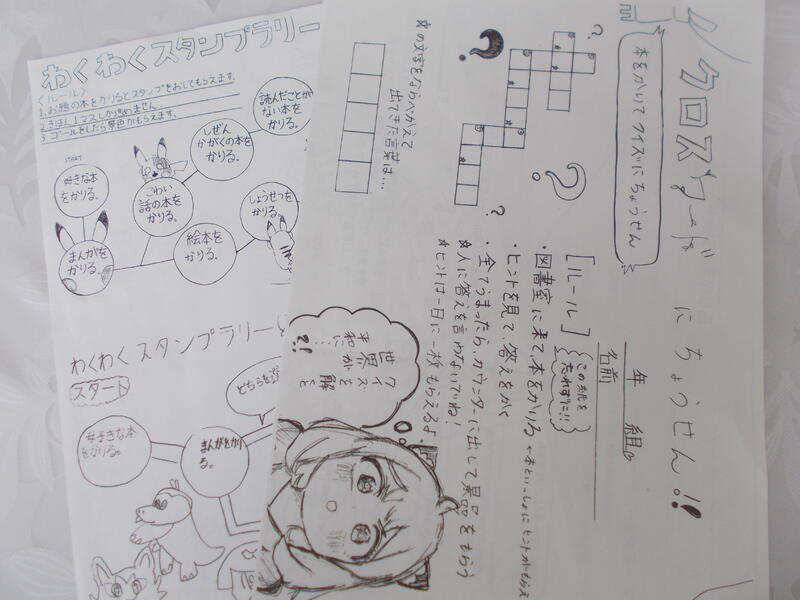 わくわくスタンプラリー
〈ルール〉
1.お題の本をかりるとスタンプをおしてもらえます。
2.きほん1マスしか進めません。
3.ゴールをしたら景品がもらえます。
START
好きな本
をかりる。
まんがを
かりる。
こわい
話の本を
かりる。
しぜん
かがくの本を
かりる。
読んだことが
ない本を
かりる。
絵本を
かりる。
しょうせつを
かりる。
わくわくスタンプラリー
スタート
好きな本
をかりる。
まんがをかり
る。
どちらを
クロスワードにちょうせん!!
本をかりてクイズにちょうせん
年 組
名前
[ルール]
この紙を
忘れずに!!
・図書室に来て本をかりる
・ヒントを見て、答えをかく
・全てうまったら、カウンターに出して景品をもらう
☆人に答えを言わないでね!
☆ヒントは一日に一枚もらえるよ
?
?
?
?
☆の文字をならべかえて
出てきた言葉は…
クイズを解くと
世界が
平和に…
?!